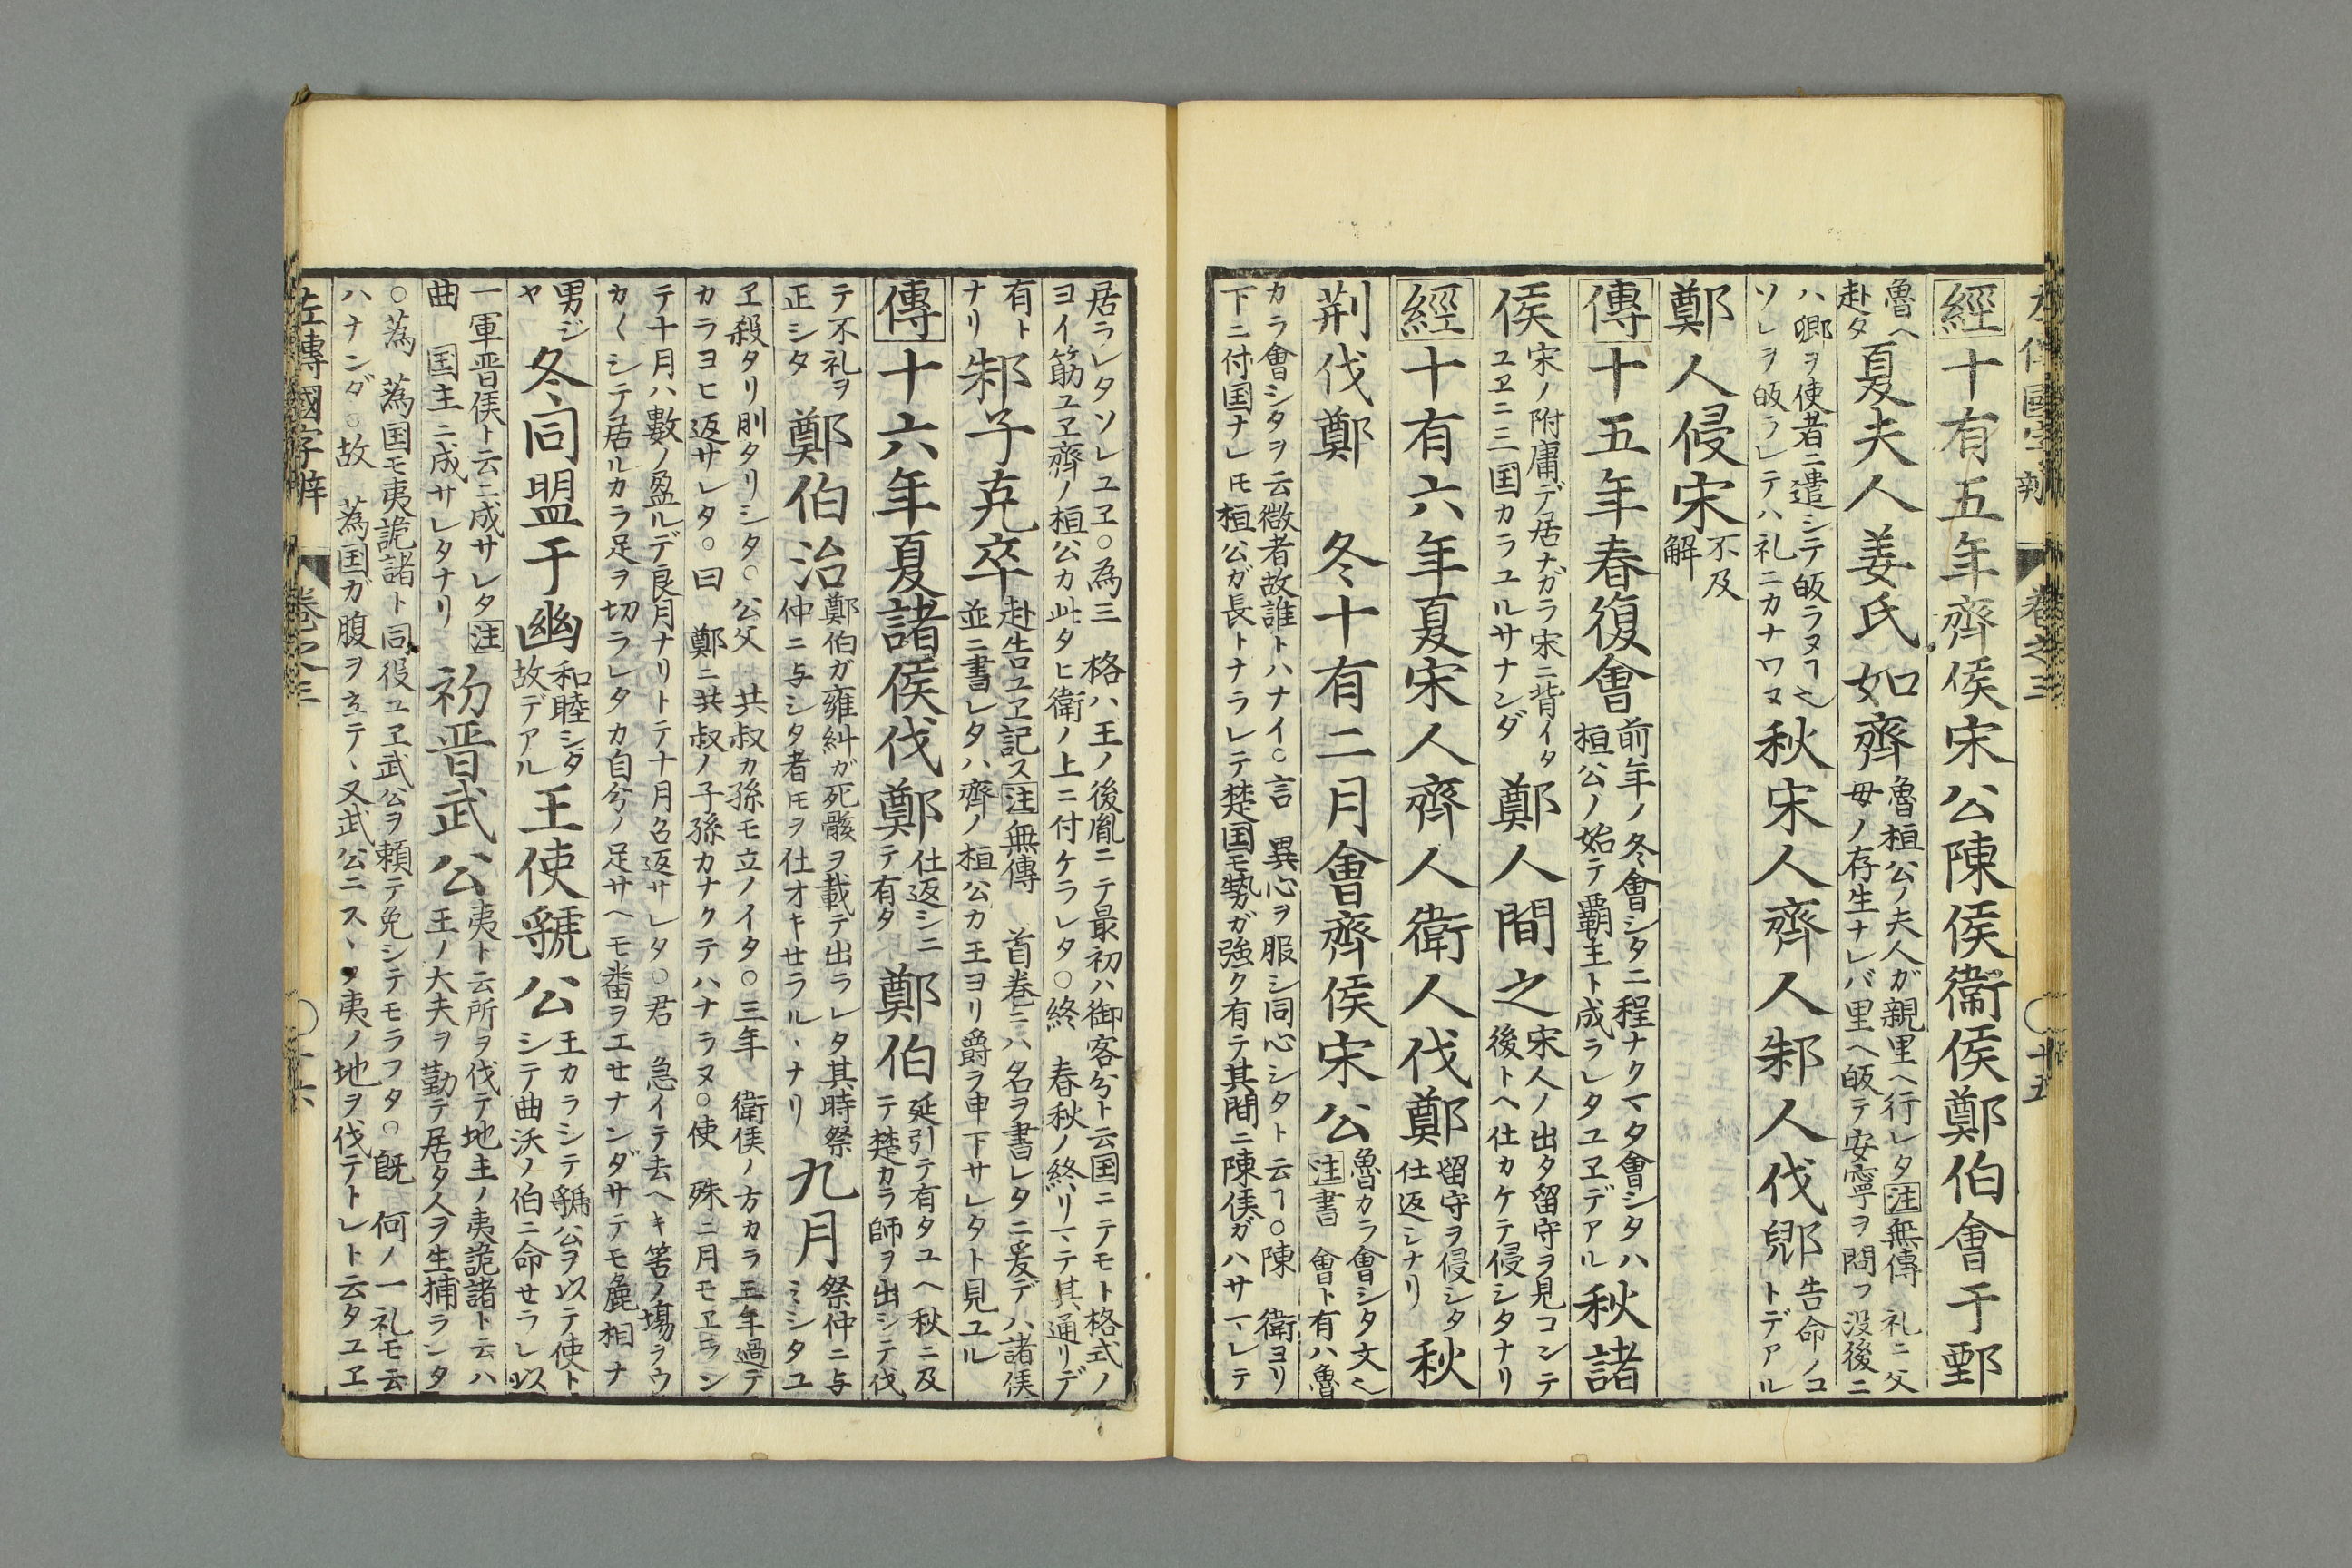 左傳國字辯 卷之三 十五
經十有五年齊侯宋公陳侯衞侯鄭伯會于鄄
魯ヘ
赴タ
夏夫人姜氏如齊
魯桓公ノ夫人ガ親里ヘ行レタ注無傳 礼ニ父
母ノ存生ナレバ里ヘ皈テ安寧ヲ問フ没後ニ
ハ卿ヲ使者ニ遣シテ皈ラヌヿ也
ソレヲ皈ラレテハ礼ニカナワヌ
秋宋人齊人邾人伐郳
告命ノコ
トデアル
鄭人侵宋
不及
解
傳十五年春復會
前年ノ冬會シタニ程ナクマタ會シタハ
桓公ノ始テ覇主ト成ラレタユヱデアル
秋諸
侯
宋ノ附庸デ居ナガラ宋ニ背イタ
ユヱニ三国カラユルサナンダ
鄭人間之
宋人ノ出タ留守ヲ見コンテ
後トヘ仕カケテ侵シタナリ
經十有六年夏宋人齊人衛人伐鄭
留守ヲ侵シタ
仕返シナリ
秋
荆伐鄭 冬十有二月會齊侯宋公
魯カラ會シタ文也
注書 會ト有ハ魯
カラ會シタヲ云微者故誰トハナイ○言 異心ヲ服シ同心シタト云ヿ○陳 衛ヨリ
下ニ付国ナレ𪜈桓公ガ長トナラレテ楚国モ勢ガ強ク有テ其間ニ陳侯ガハサマレテ
居ラレタソレユヱ○為三 格ハ王ノ後胤ニテ最初ハ御客分ト云国ニテモト格式ノ
ヨイ筋ユヱ齊ノ桓公カ此タヒ衛ノ上ニ付ケラレタ○終 春秋ノ終リマテ其通リデ
有ト
ナリ
邾子克卒
赴告ユヱ記ス注無傳 首巻ニハ名ヲ書レタニ爰デハ諸侯
並ニ書レタハ齊ノ桓公カ王ヨリ爵ヲ申下サレタト見ユル
傳十六年夏諸侯伐鄭
仕返シニ
テ有タ
鄭伯
延引テ有タユヘ秋ニ及
テ楚カラ師ヲ出シテ伐
テ不礼ヲ
正シタ
鄭伯治
鄭伯ガ雍糾ガ死骸ヲ載テ出ラレタ其時祭
仲ニ与シタ者𪜈ヲ仕オキせラル、ナリ
九月
祭仲ニ与
ミシタユ
ヱ殺タリ刖タリシタ○公父 共叔カ孫モ立ノイタ○三年 衛侯ノ方カラ三年過テ
カラヨヒ返サレタ○曰 鄭ニ共叔ノ子孫カナクテハナラヌ○使 殊ニ月モヱラン
テ十月ハ數ノ盈ルデ良月ナリトテ十月召返サレタ○君 急イテ去ヘキ筈ノ場ヲウ
カ〱シテ居ルカラ足ヲ切ラレタカ自分ノ足サヘモ番ヲエせナンダサテモ麁相ナ
男ジ
ヤ
冬同盟于幽
和睦シタ
故デアル
王使虢公
王カラシテ虢公ヲ以テ使ト
シテ曲沃ノ伯ニ命せラレ以
一軍晋侯ト云ニ成サレタ注
曲 国主ニ成サレタナリ
初晋武公
夷ト云所ヲ伐テ地主ノ夷詭諸ト云ハ
王ノ大夫ヲ勤テ居タ人ヲ生捕ランタ
○蒍 蒍国モ夷詭諸ト同役ユヱ武公ヲ頼テ免シテモラフタ○既 何ノ一礼モ云
ハナンダ○故 蒍国ガ腹ヲ立テ、又武公ニスヽメ夷ノ地ヲ伐テトレト云タユヱ
左傳國字辯 卷之三 十六